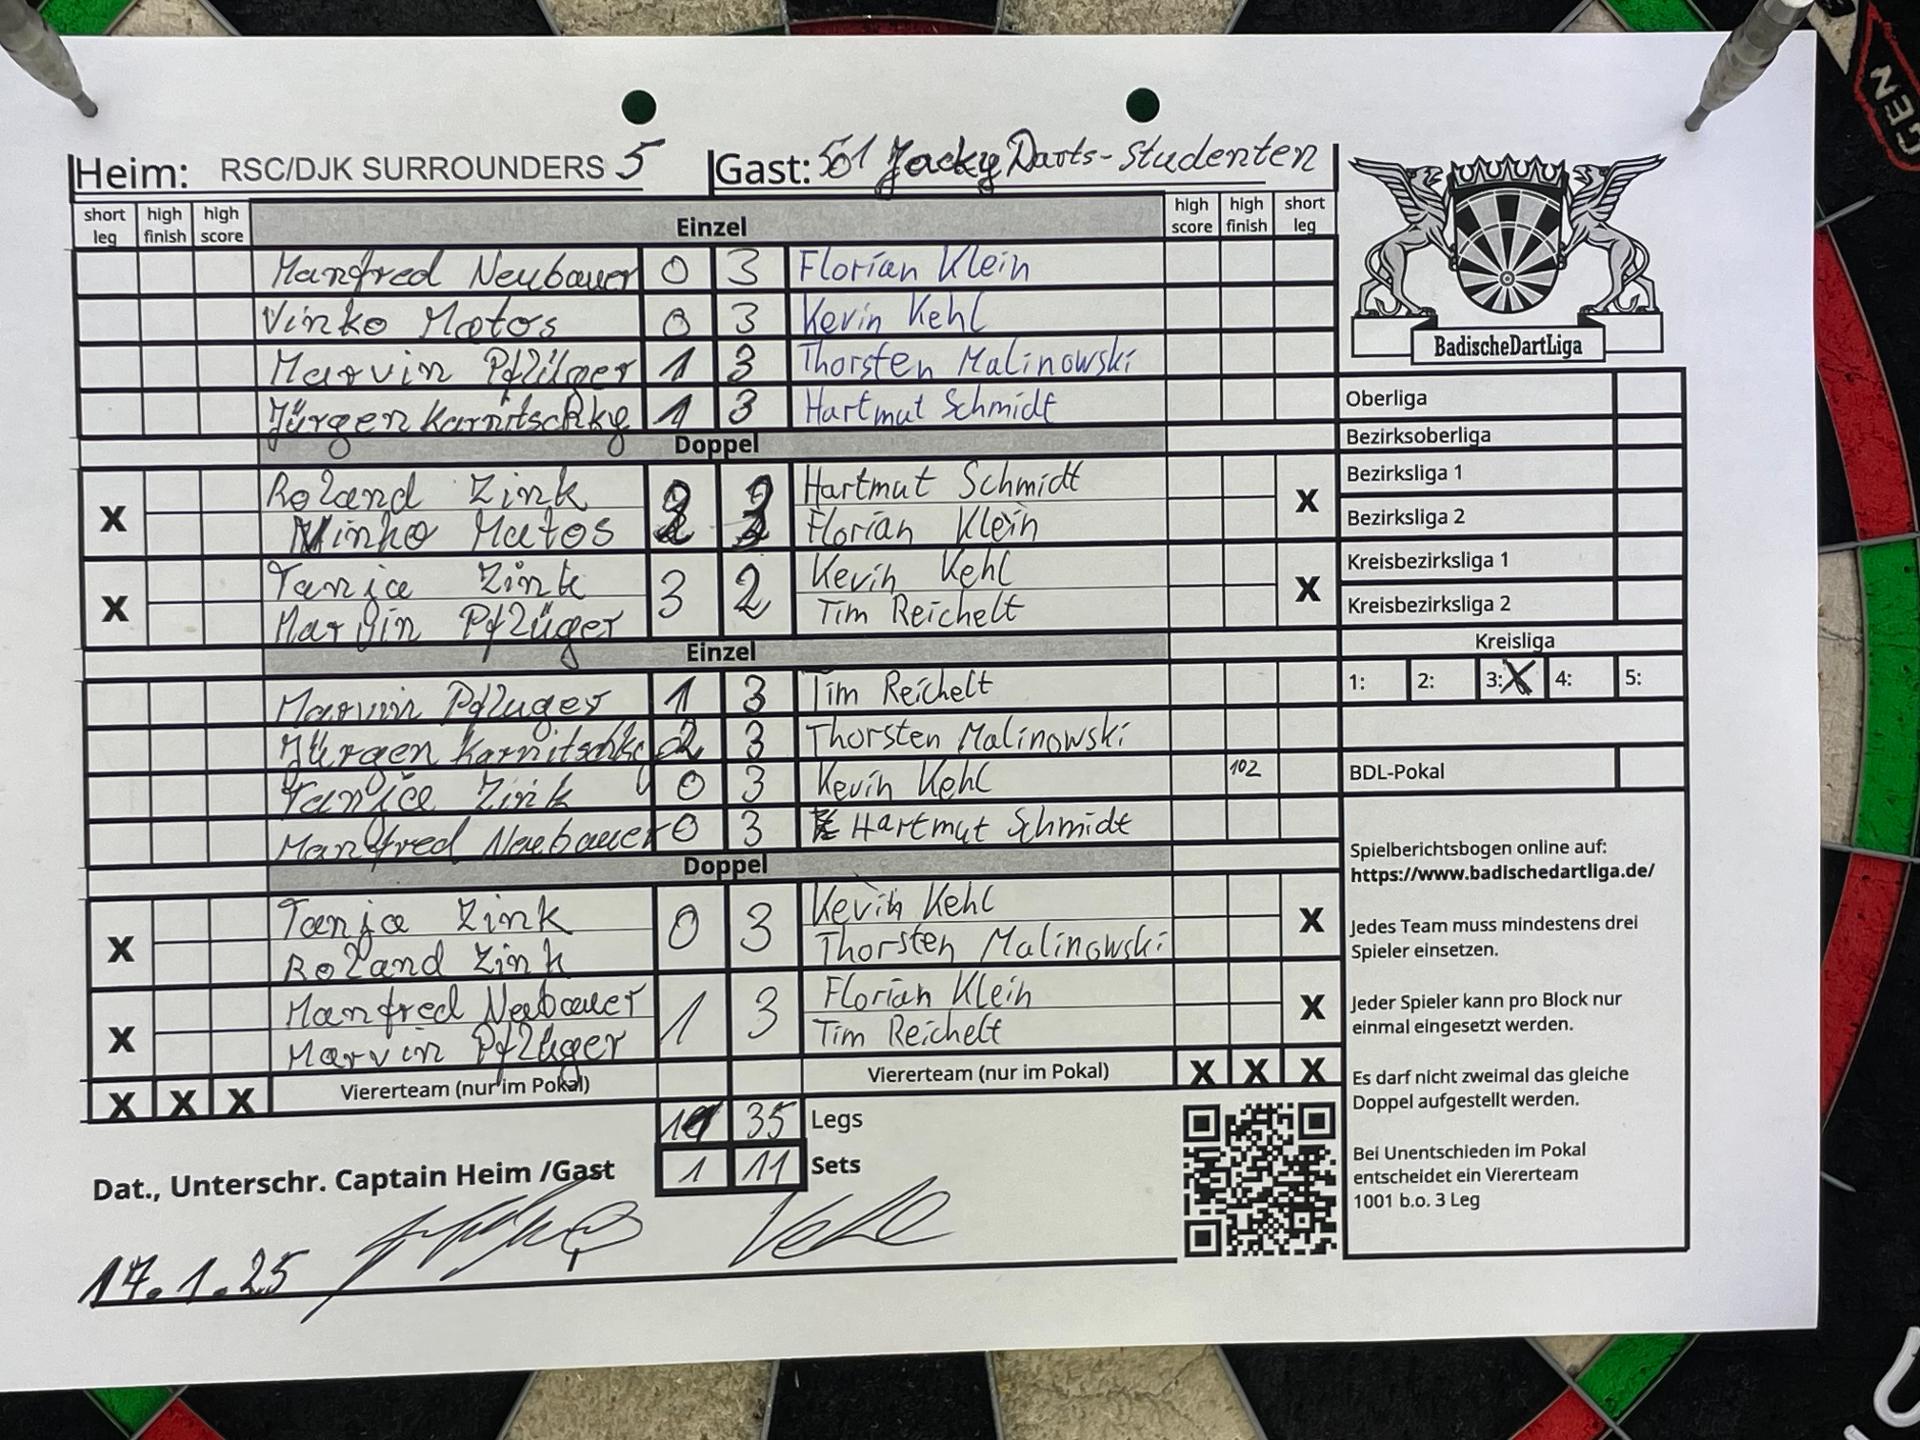 Heim: RSC/DJK SURROUNDERS 5 Gast: 501 Jacky Darts-Studenten
short leg high finish high score Einzel high score high finish short leg
Manfred Neubauer 0 3 Florian Klein
Vinko Matos 0 3 Kevin Kehl
Marvin Pflüger 1 3 Thorsten Malinowski
Jürgen Karnitschky 1 3 Hartmut Schmidt
Doppel
Roland Zink Hartmut Schmidt
X X
Vinko Matos Florian Klein
Tanja Zink Kevin Kehl
X 3 2 X
Marvin Pflüger Tim Reichelt
Einzel
Marvin Pfluger 1 3 Tim Reichelt
Jürgen Karnitschky 2 3 Thorsten Malinowski
Tanja Zink 0 3 Kevin Kehl 102
Manfred Neubauer 0 3 Hartmut Schmidt
Doppel
Tanja Zink Kevin Kehl
X 0 3 X
Roland Zink Thorsten Malinowski
Manfred Neubauer Florian Klein
X 1 3 X
Marvin Pflüger Tim Reichelt
X X X Viererteam (nur im Pokal) Viererteam (nur im Pokal) X X X
35 Legs
1 11 Sets
Dat., Unterschr. Captain Heim /Gast
17.1.25
BadischeDartLiga
Oberliga
Bezirksoberliga
Bezirksliga 1
Bezirksliga 2
Kreisbezirksliga 1
Kreisbezirksliga 2
Kreisliga
1: 2: 3: X 4: 5:
BDL-Pokal
Spielberichtsbogen online auf:
https://www.badischedartliga.de/
Jedes Team muss mindestens drei
Spieler einsetzen.
Jeder Spieler kann pro Block nur
einmal eingesetzt werden.
Es darf nicht zweimal das gleiche
Doppel aufgestellt werden.
Bei Unentschieden im Pokal
entscheidet ein Viererteam
1001 b.o. 3 Leg